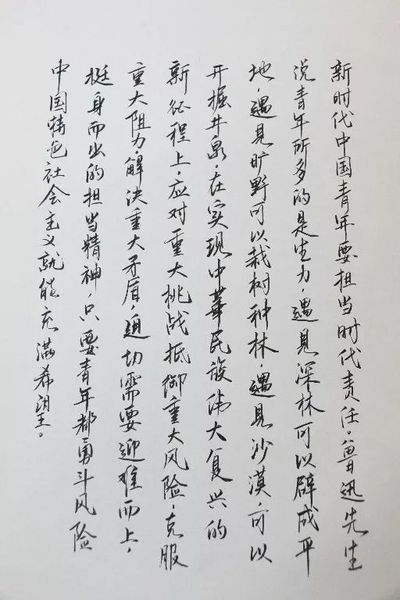 新时代中国青年要担当时代责任。鲁迅先生
说青年所多的是生力，遇见深林可以辟成平
地，遇见旷野可以栽树种林，遇见沙漠，可以
开掘井泉，在实现中華民族伟大复兴的
新征程上，应对重大挑战抵御重大风险，克服
重大阻力，解决重大矛盾，迫切需要迎难而上，
挺身而出的担当精神，只要青年都勇斗风险
中国特色社会主义就能充满希望。